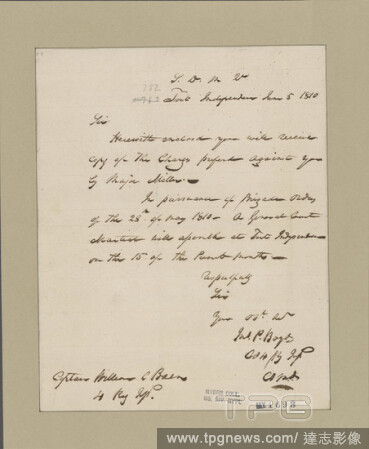 Fort Independence June 5 1810
Sir
Herewith enclosed you will receive
Copy of the Charges prefered against you
by Major Miller.
In pursuance of Brigade Orders
of the 28th of May 1810. A General Court
Martial will assemble at Fort Independence
on the 15 of the Present month
Respectfully
Sir
Your Obt
Jno. P. Boyd
Captain William C Baen
4 Reg
TPG
www.tpgnews.com/達志影像